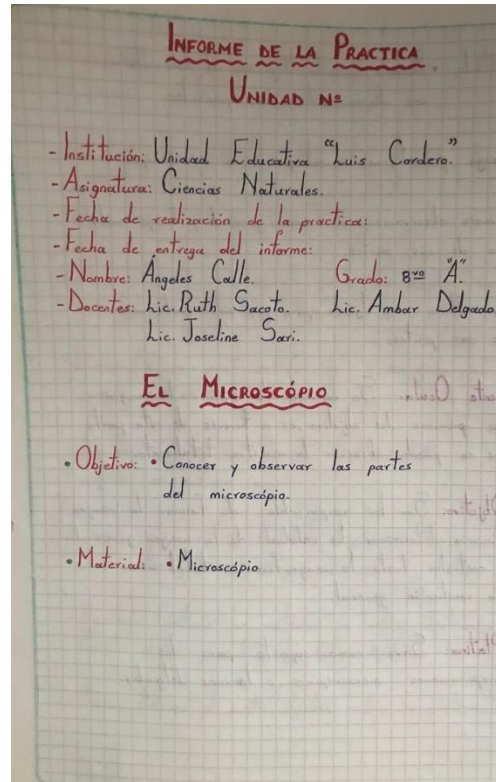 INFORME DE LA PRACTICA.
UNIDAD Nº
- Institución: Unidad Educativa "Luis Cordero."
- Asignatura: Ciencias Naturales.
- Fecha de realización de la practica:
- Fecha de entrega del informe:
- Nombre: Ángeles Calle. Grado: 8vo "A".
- Docentes: Lic. Ruth Sacoto. Lic. Ambar Delgado
Lic. Joseline Sari.
EL MICROSCÓPIO
• Objetivo: • Conocer y observar las partes
del microscópio.
• Material: • Microscópio